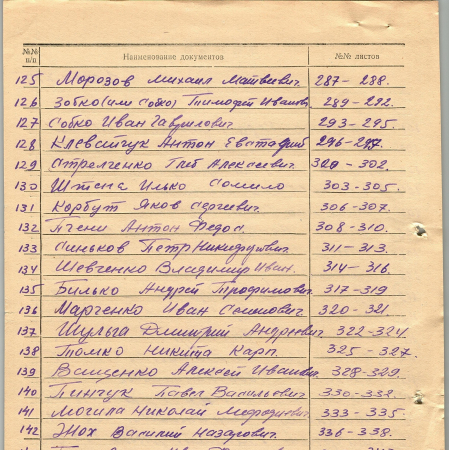 №№ п/п Наименование документов №№ листов
125 Морозов Михаил Матвеевич 287-288.
126 Зобко (или Собко) Тимофей Иванов 289-292.
127 Собко Иван Гаврилович 293-295.
128 Клевайчук Антон 296-297.
129 Стрелченко Глеб Алексеевич 302.
130 Штена Илько 303-305.
131 Корбут Яков Сергеевич. 306-307.
132 Антон Федос. 308-310.
133 Сеньков Петр Никифорович. 311-313.
134 Шевченко Владимир Иван. 314-316.
135 Билько Андрей Трофимович 317-319
136 Марченко Иван Семинович 320-321
137 Шульга Дмитрий Андреевич 322-324
138 Томко Никита Карп. 325-327.
139 Ващенко Алексей Иванович 328-329
140 Пинчук Павел Васильович. 330-332.
141 Могила Николай 333-335.
142 Жох Василий Назарович. 336-338.